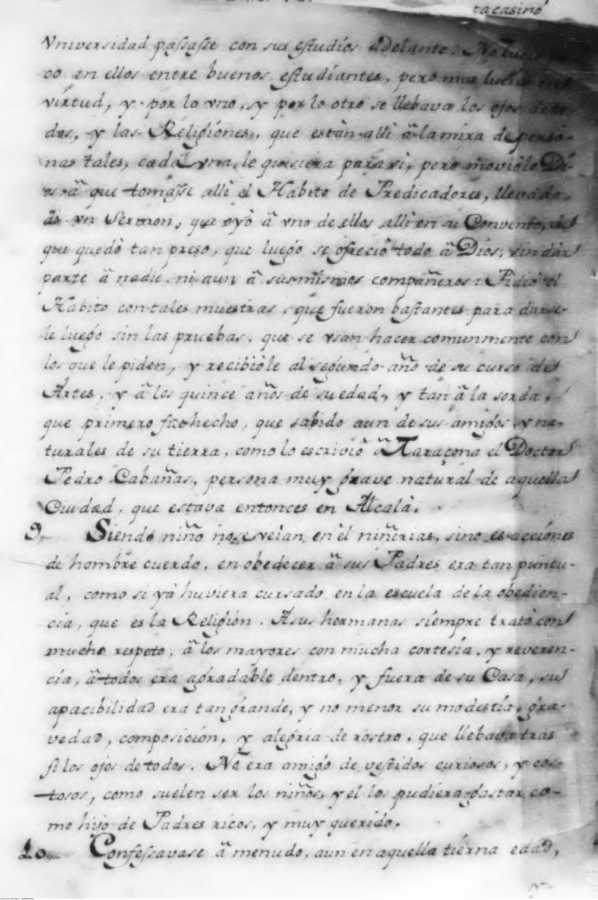 tacasino
Vniversidad passasse con sus estudios adelante. No
co en ellos entre buenos estudiantes, pero mas
virtud, y por lo vno, y por lo otro se llebava los ojos de to-
dos, y las Religiones, que estàn alli â la mira de perso-
nas tales, cada vna le quisiera para si, pero moviòle Di-
s â que tomasse alli el Habito de Predicadores, lleva
de vn Sermon, que oyò â vno de ellos alli en su Convento, de
que quedò tan preso, que luego se ofreciò todo â Dios, sin dar
parte â nadie, ni aun â sus mismos compañeros: Pidiò el
Habito con tales muestras, que fueron bastantes para darse-
le luego sin las pruebas, que se vsan hacer comunmente con
los que le piden, y recibiòle al segundo año de su curso de
Artes, y â los quince años de su edad, y tan â la sorda,
que primero fue hecho, que sabido aun de sus amigos, y na-
turales de su tierra, como lo escriviò â Taraçona el Doctor
Pedro Cabañas, persona muy grave natural de aquella
Ciudad, que estava entonces en Alcalà.
9. Siendo niño no se veìan en èl niñerias, sino es acciones
de hombre cuerdo, en obedecer â sus Padres era tan puntu-
al, como si yà huviera cursado en la escuela de la obedien-
cia, que es la Religiòn. A sus hermanas siempre tratò con
mucho respeto, â los mayores con mucha cortesìa, y reveren-
cia, â todos era agradable dentro, y fuera de su Casa, su
apacibilidad era tan grande, y no menor su modestia, gra-
vedad, composiciòn, y alegria de rostro, que llebava tras
sì los ojos de todos. No era amigo de vestidos curiosos, y cos-
tosos, como suelen ser los niños, y el los pudiera gastar co-
mo hijo de Padres ricos, y muy querido.
10. Confessavase â menudo, aun en aquella tierna edad,